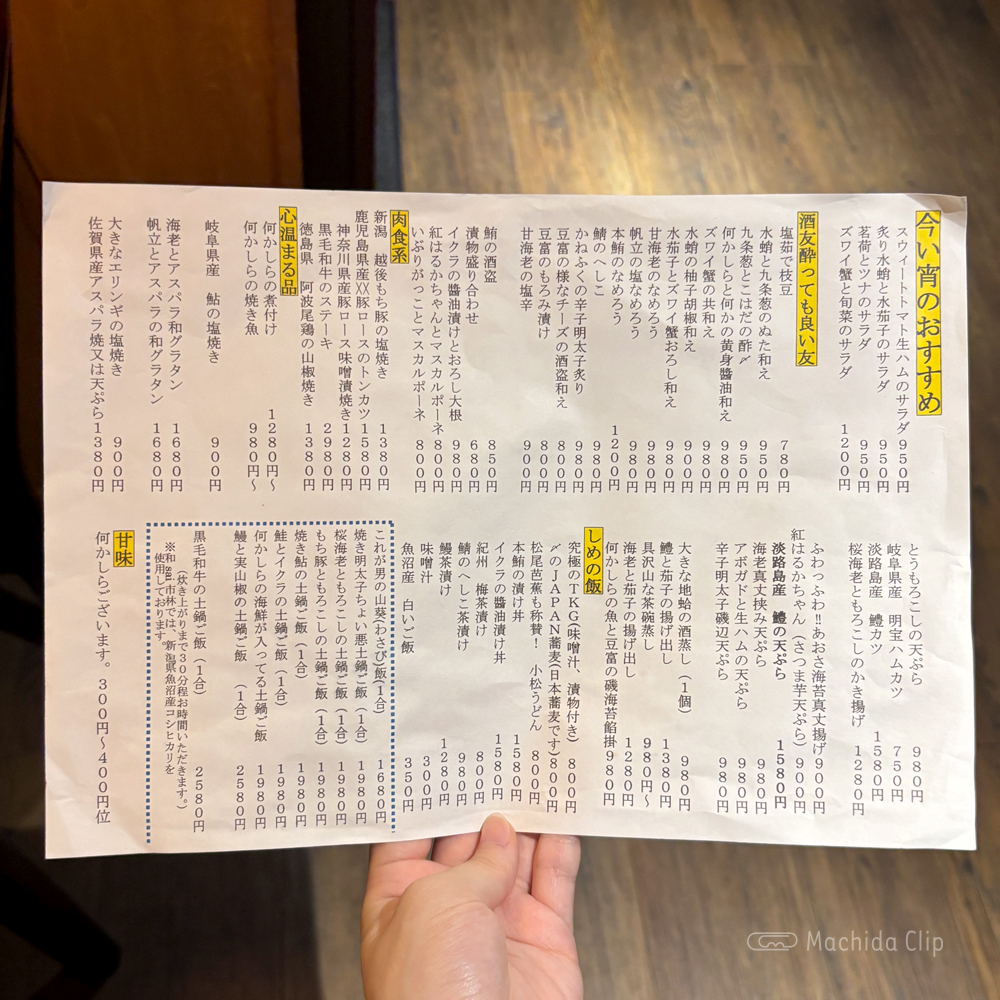 今い宵のおすすめ
スウィートトマト生ハムのサラダ 950円
炙り水蛸と水茄子のサラダ 950円
茗荷とツナのサラダ 950円
ズワイ蟹と旬菜のサラダ 1200円
酒友酔っても良い友
塩茹で枝豆 780円
水蛸と九条葱のぬた和え 950円
九条葱とこはだの酢〆 950円
何かしらと何かの黄身醬油和え 980円
ズワイ蟹の共和え 980円
水蛸の柚子胡椒和え 900円
水茄子とズワイ蟹おろし和え 980円
甘海老のなめろう 980円
帆立の塩なめろう 980円
本鮪のなめろう 1200円
鯖のへしこ 980円
かねふくの辛子明太子炙り 980円
豆富の様なチーズの酒盗和え 800円
豆富のもろみ漬け 800円
甘海老の塩辛 900円
鮪の酒盗 850円
漬物盛り合わせ 680円
イクラの醬油漬けとおろし大根 980円
紅はるかちゃんとマスカルポーネ 800円
いぶりがっことマスカルポーネ 800円
肉食系
新潟 越後もち豚の塩焼き 1380円
鹿児島県産XX豚ロースのトンカツ 1580円
神奈川県産豚ロース味噌漬焼き 1280円
黒毛和牛のステーキ 2980円
徳島県 阿波尾鶏の山椒焼き 1380円
心温まる品
何かしらの煮付け 1280円〜
何かしらの焼き魚 980円〜
岐阜県産 鮎の塩焼き 900円
海老とアスパラ和グラタン 1680円
帆立とアスパラの和グラタン 1680円
大きなエリンギの塩焼き 900円
佐賀県産アスパラ焼又は天ぷら 1380円
とうもろこしの天ぷら 980円
岐阜県産 明宝ハムカツ 750円
淡路島産 鱧カツ 1580円
桜海老ともろこしのかき揚げ 1280円
ふわっふわ‼あおさ海苔真丈揚げ 900円
紅はるかちゃん(さつま芋天ぷら) 900円
淡路島産 鱧の天ぷら 1580円
海老真丈挟み天ぷら 980円
アボガドと生ハムの天ぷら 980円
辛子明太子磯辺天ぷら 980円
大きな地蛤の酒蒸し(1個) 980円
鱧と茄子の揚げ出し 1380円
具沢山な茶碗蒸し 980円〜
海老と茄子の揚げ出し 1280円
何かしらの魚と豆富の磯海苔餡掛 980円
しめの飯
究極のTKG(味噌汁、漬物付き) 800円
〆のJAPAN蕎麦(日本蕎麦です) 800円
松尾芭蕉も称賛! 小松うどん 800円
本鮪の漬け丼 1580円
イクラの醬油漬け丼 1580円
紀州 梅茶漬け 800円
鯖のへしこ茶漬け 980円
鰻茶漬け 1280円
味噌汁 300円
魚沼産 白いご飯 350円
これが男の山葵(わさび)飯(1合) 1680円
焼き明太子ちょい悪土鍋ご飯(1合) 1980円
桜海老ともろこしの土鍋ご飯(1合) 1980円
もち豚ともろこしの土鍋ご飯(1合) 1980円
焼き鮎の土鍋ご飯(1合) 1980円
鮭とイクラの土鍋ご飯(1合) 1980円
何かしらの海鮮が入ってる土鍋ご飯 1980円
鰻と実山椒の土鍋ご飯(1合) 2580円
黒毛和牛の土鍋ご飯(1合) 2580円
(炊き上がりまで30分程お時間いただきます。)
市林では、新潟県魚沼産コシヒカリを
使用しております。
甘味
何かしらございます。300円〜400円位
Machida Clip